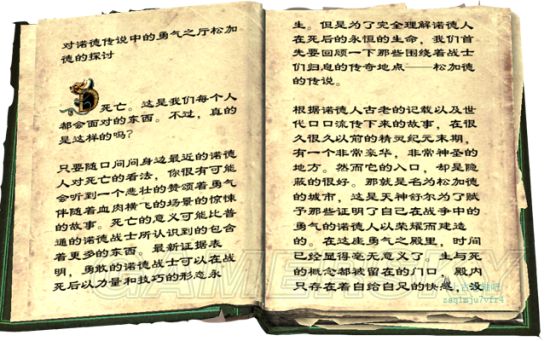 对诺德传说中的勇气之厅松加
德的探讨
死亡。这是我们每个人
都会面对的东西。不过，真的
是这样的吗？
只要随口问问身边最近的诺德
人对死亡的看法，你很有可能
会听到一个悲壮的赞颂着勇气
伴随着血肉横飞的场景的惊悚
的故事。死亡的意义可能比普
通的诺德战士所认识到的包含
着更多的东西。最新证据表
明，勇敢的诺德战士可以在战
死后以力量和技巧的形态永
生。但是为了完全理解诺德人
在死后的永恒的生命，我们首
先要回顾一下那些围绕着战士
们归息的传奇地点——松加德
的传说。
根据诺德人古老的记载以及世
代口口流传下来的故事，在很
久很久以前的精灵纪元末期，
有一个非常豪华，非常神圣的
地方。然而它的入口，却是隐
蔽的很好。那就是名为松加德
的城市，这是天神舒尔为了赋
予那些证明了自己在战争中的
勇气的诺德人以荣耀而建造
的。在这座勇气之殿里，时间
已经显得毫无意义了，生与死
的概念都被留在的门口，殿内
只存在着自给自足的快感，没
zaq1mju7vfr4